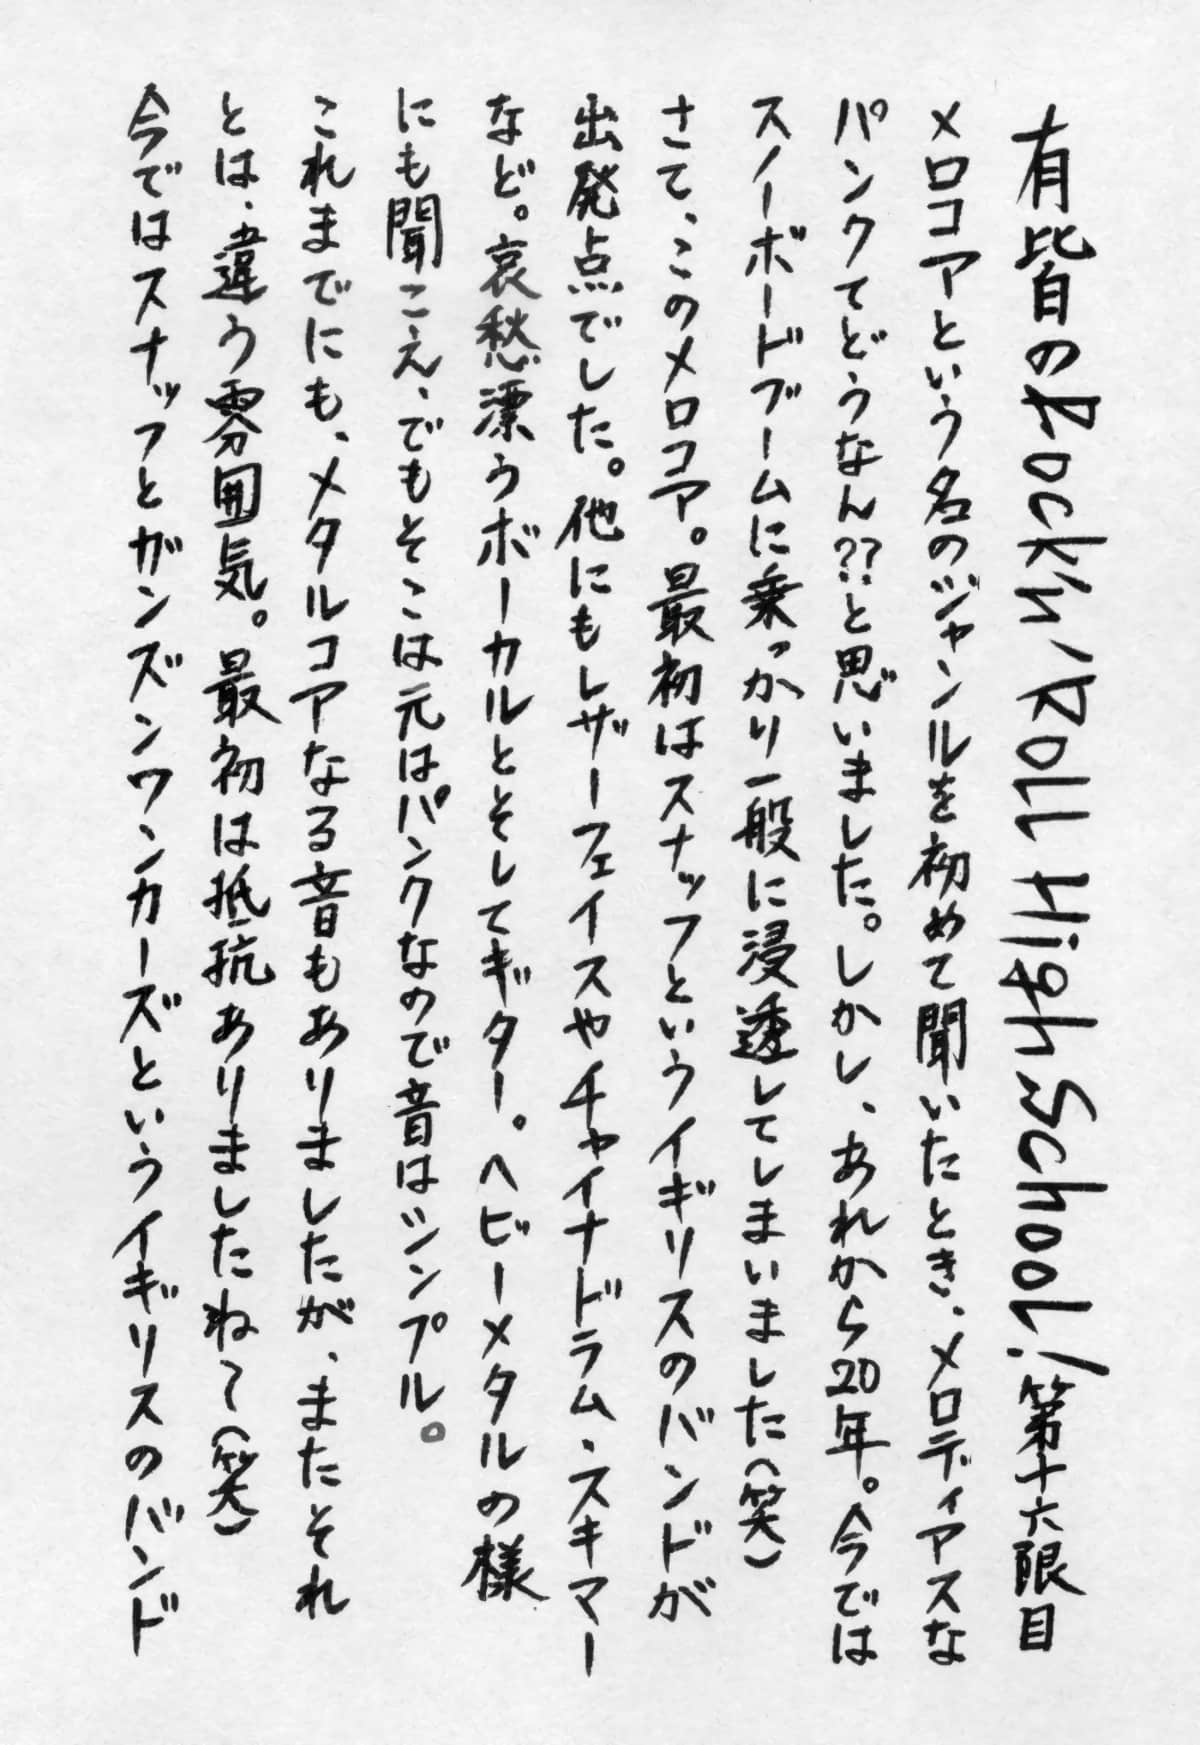 有皆のRock'n'Roll High School!第十六限目
メロコアという名のジャンルを初めて聞いたとき、メロディアスな
パンクてどうなん??と思いました。しかし、あれから20年。今では
スノーボードブームに乗っかり一般に浸透してしまいました(笑)
さて、このメロコア。最初はスナッフというイギリスのバンドが
出発点でした。他にもレザーフェイスやチャイナドラム、スキマー
など。哀愁漂うボーカルとそしてギター。ヘビーメタルの様
にも聞こえ、でもそこは元はパンクなので音はシンプル。
これまでにも、メタルコアなる音もありましたが、またそれ
とは、違う雰囲気。最初は抵抗ありましたねて(笑)
今ではスナッフとガンズンワンカーズというイギリスのバンド